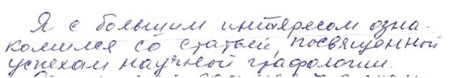 Я с большим интересом озна-
комился со статьей, посвященной
успехам научной графологии.